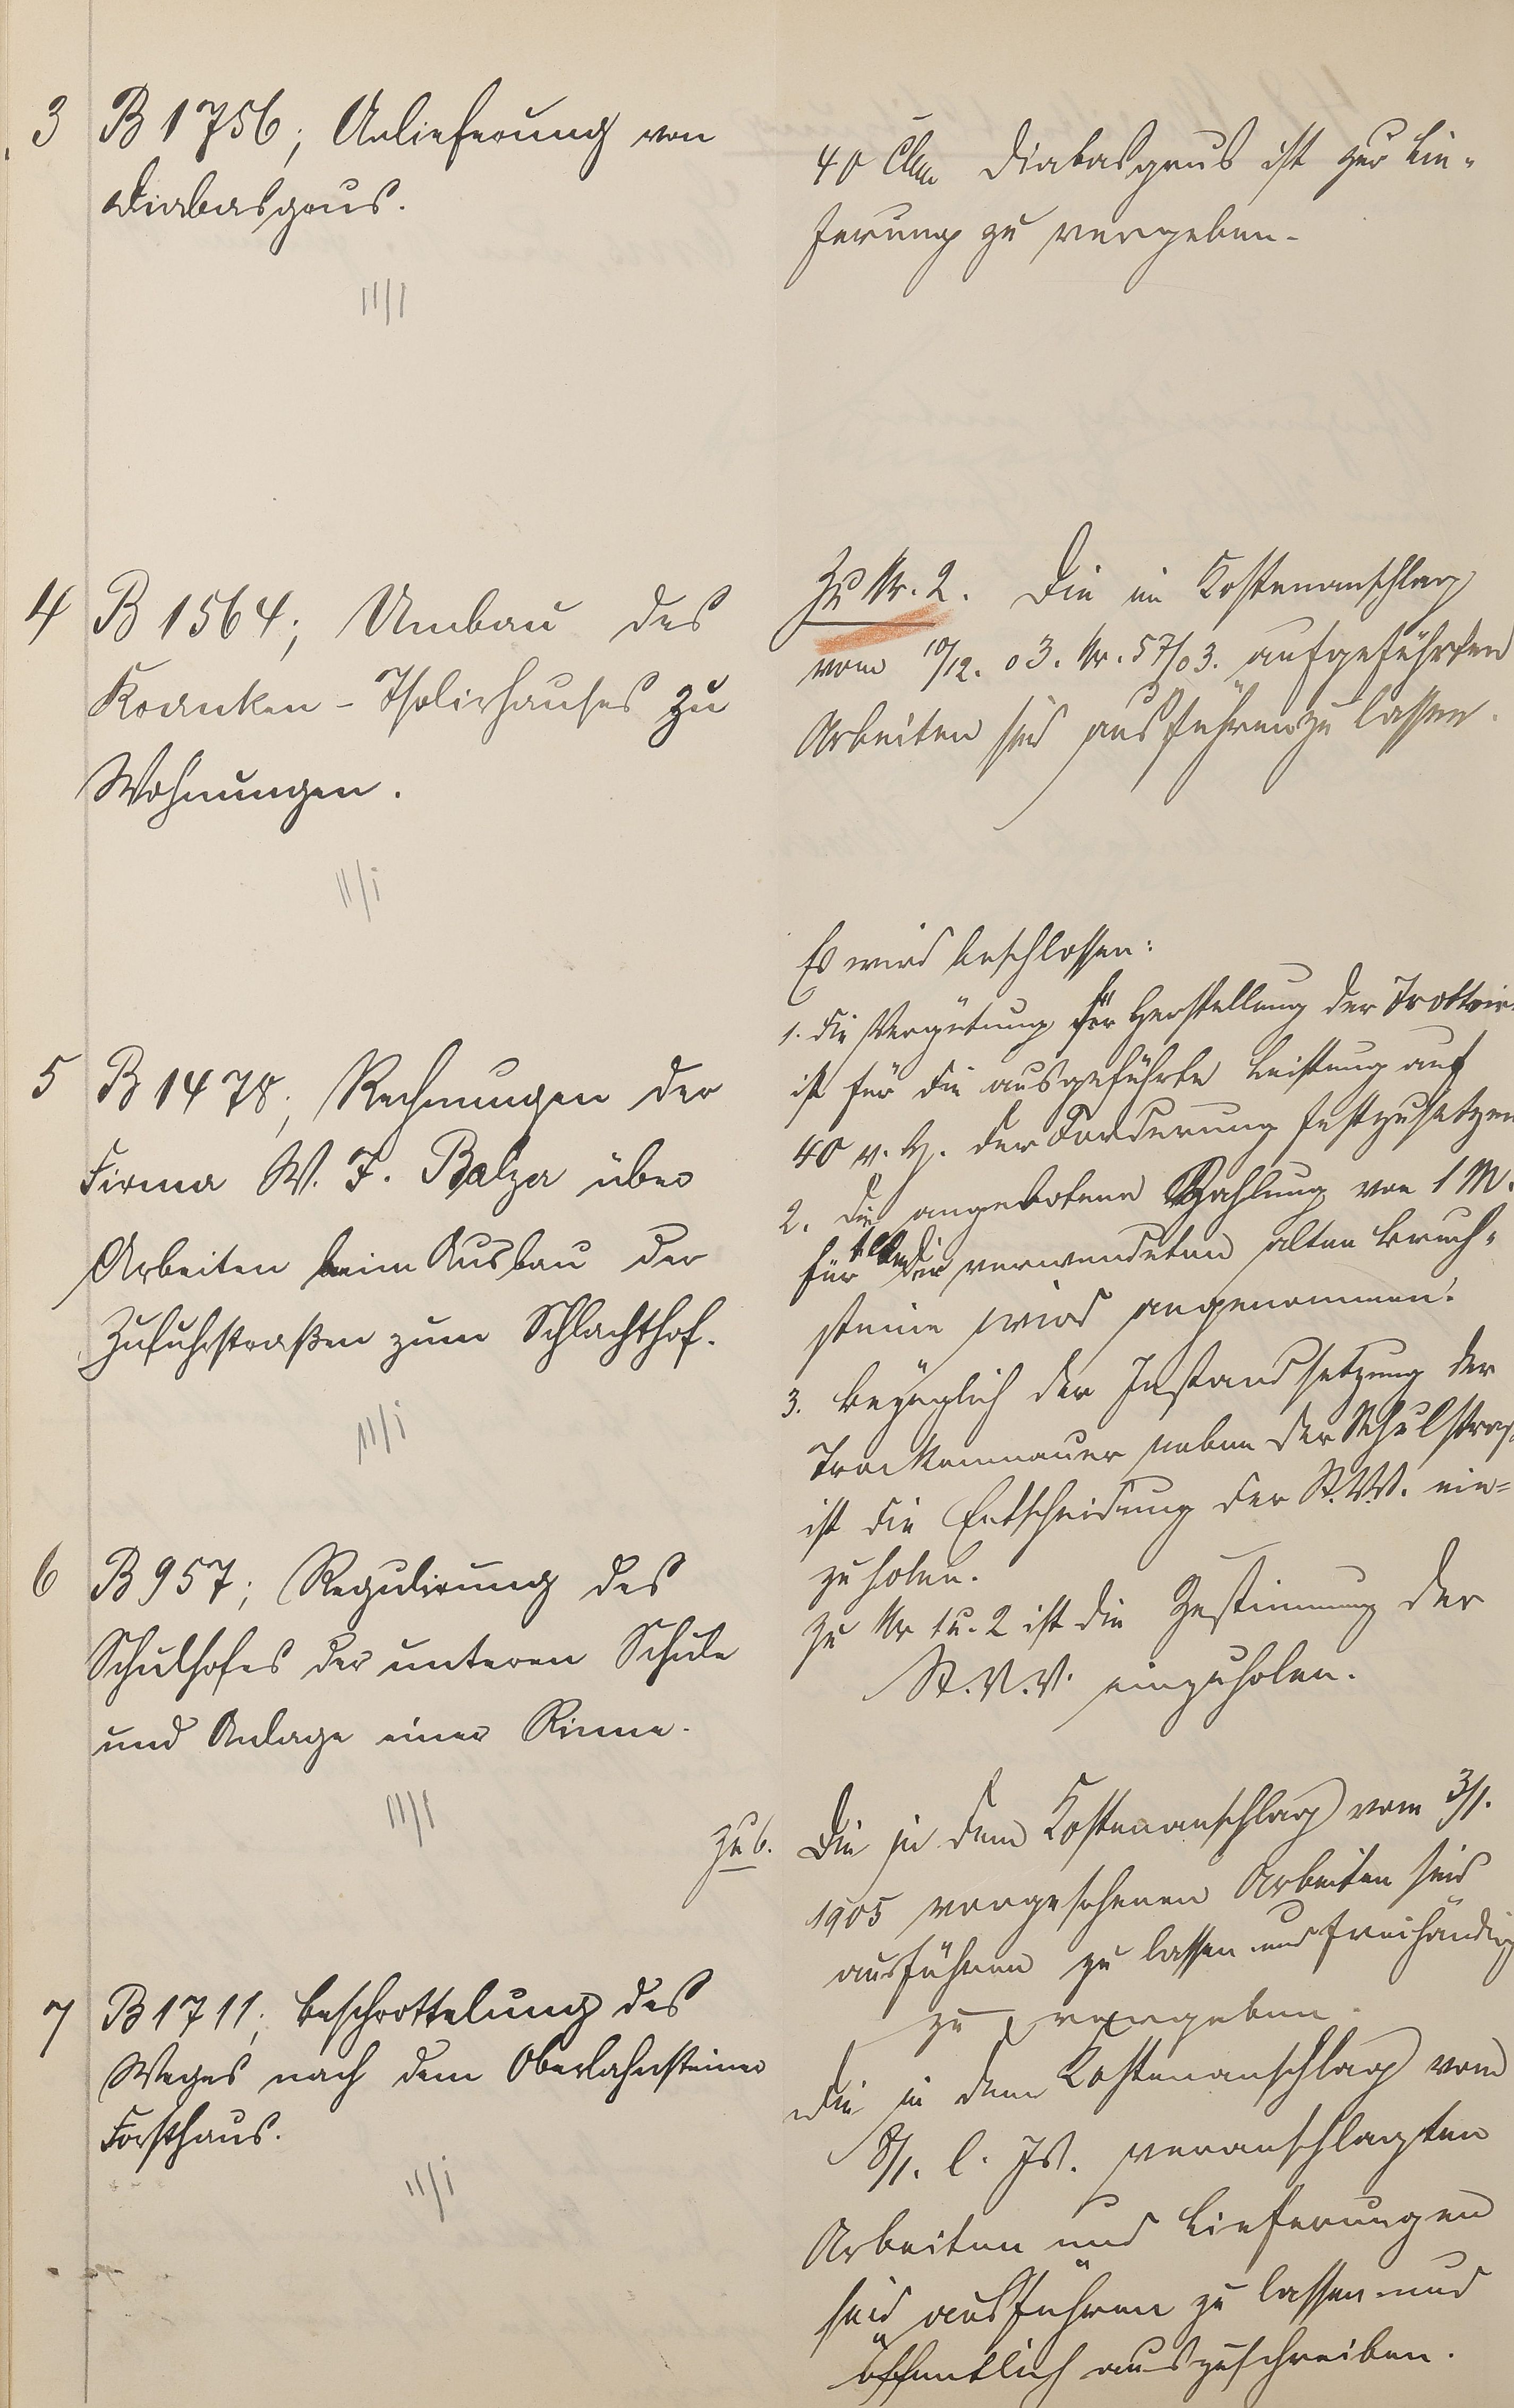 3 B 1756; Anlieferung von
Diabasgrus.
11/1
40 Cbm Diabasgrus ist zur Lie-
ferung zu vergeben.
4 B 1564; Umbau des
Kranken-Isolirhauses zu
Wohnungen.
11/1
Zu Nr. 2. Die im Kostenanschlag
vom 10/12. 03. Nr. 57/03. aufgeführten
Arbeiten sind ausführen zu lassen.
5 B 1478; Rechnungen der
Firma W. F. Balzer über
Arbeiten beim Ausbau der
Zufuhrstraßen zum Schlachthof.
11/1
Es wird beschlossen:
1. die Vergütung für Herstellung der Trottoir
ist für die ausgeführte Leistung auf
40 v. H. der Forderung festzusetzen
2. die angebotene Zahlung von 1 M.
für die verwendeten alten Bruch-
steine wird angenommen.
3. bezüglich der Instandsetzung der
Trockenmauer neben der Schulstraß
ist die Entscheidung der St.V.V. ein-
zuholen.
zu Nr 1 u. 2 ist die Zustimmung der
St.V.V. einzuholen.
6 B 957; Regulirung des
Schulhofes der unteren Schule
und Anlage einer Rinne.
11/1
zu 6. Die in dem Kostenanschlag vom 3/1.
1905 vorgesehenen Arbeiten sind
ausführen zu lassen und freihändig
zu vergeben.
7 B 1711; Beschrottelung des
Weges nach dem Oberlahnsteiner
Forsthaus.
11/1
Die in dem Kostenanschlag vom
8/1. l. Js. veranschlagten
Arbeiten und Lieferungen
sind ausführen zu lassen und
öffentlich auszuschreiben.